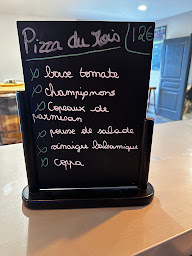 Pizza du Mois 12€
base tomate
champignons
Copeaux de
parmesan
pousse de salade
vinaigre balsamique
coppa